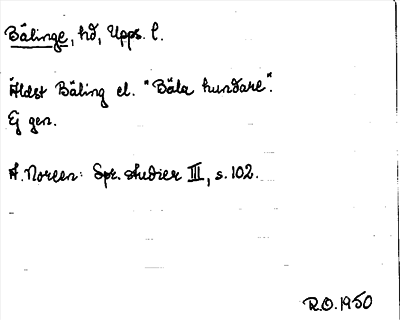 Bälinge, hd, Upps. l.
Äldst Bäling el. "Bäla hundare".
Ej gen.
A. Noreen: Spr. studier III, s. 102.
R.O. 1950